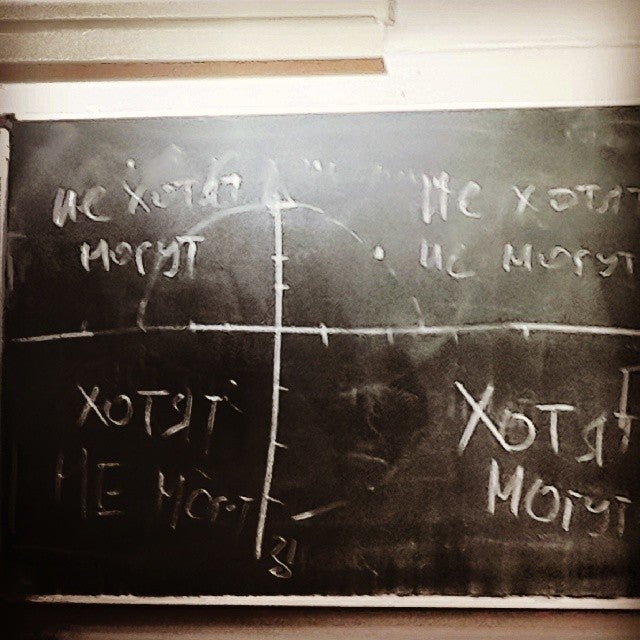 не хотят
могут
не хотят
не могут
хотят
не могут
хотят
могут